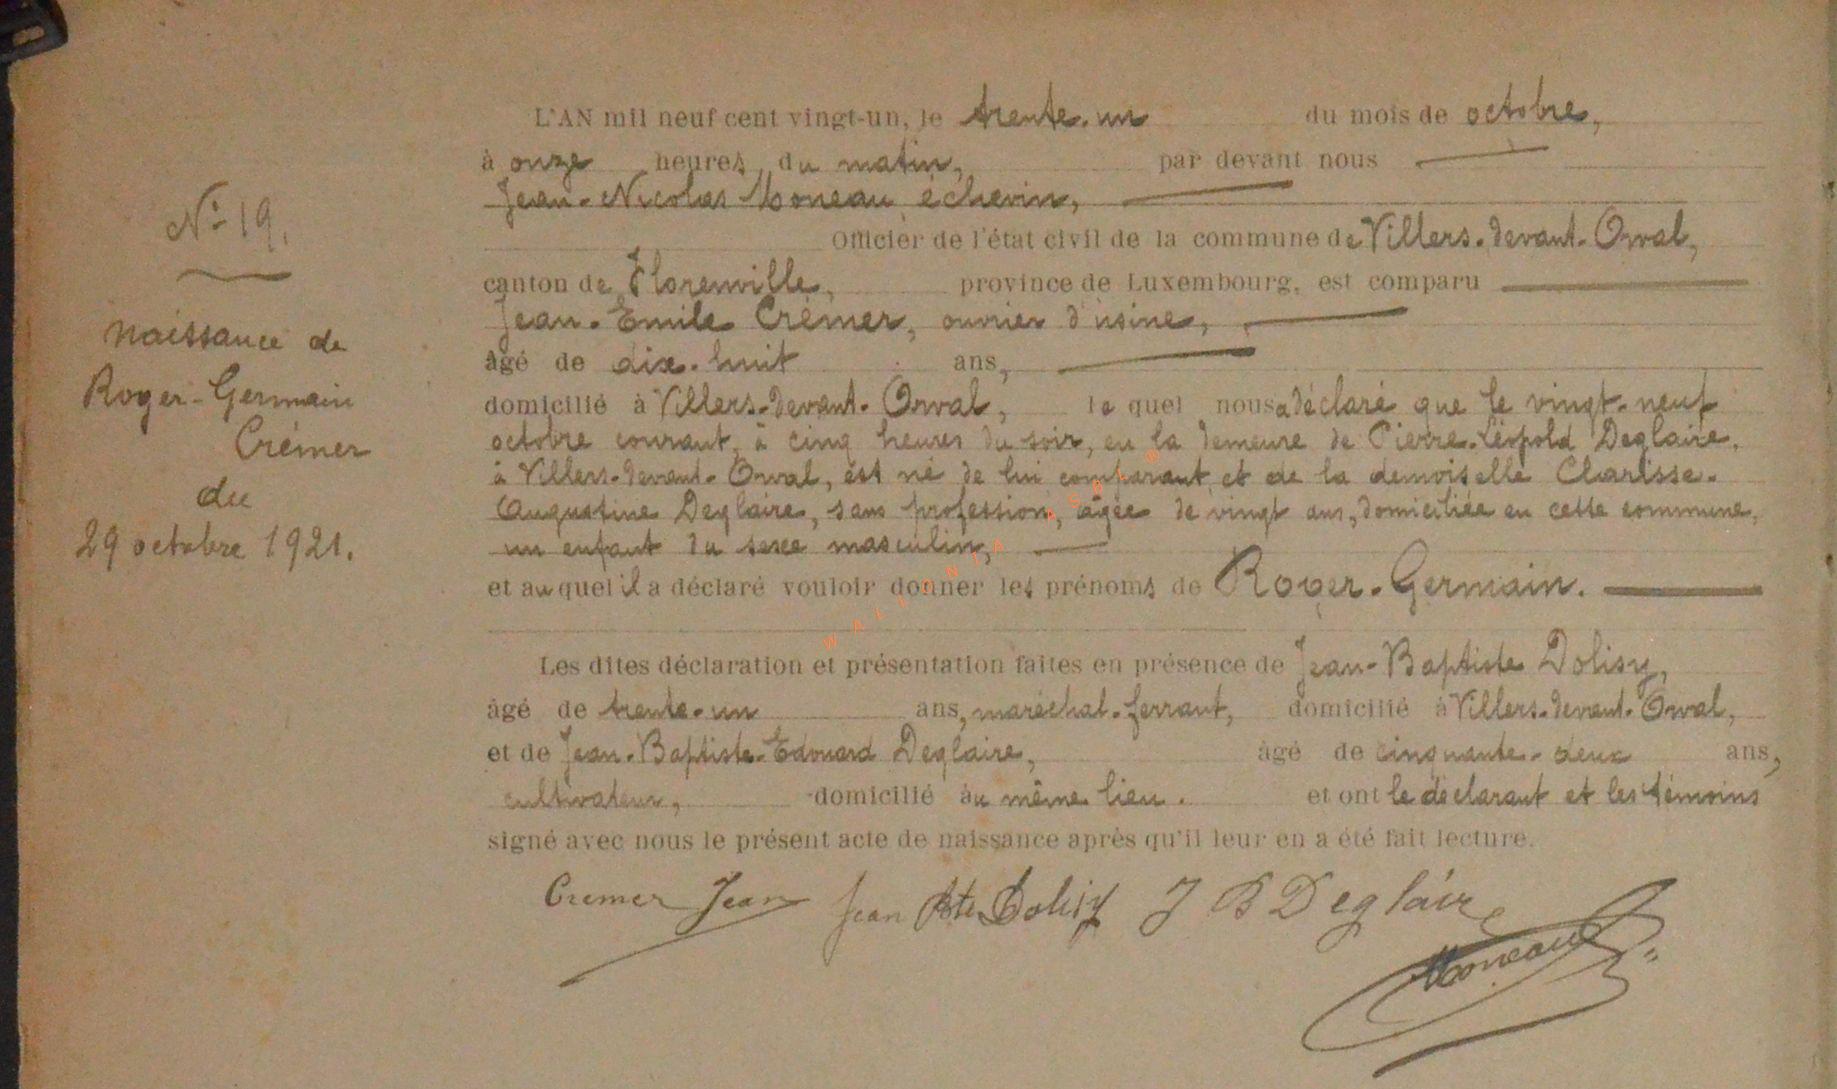 N° 19.
Naissance de
Roger-Germain
Crémer
du
29 octobre 1921.
L'AN mil neuf cent vingt-un, le trente-un du mois de octobre,
à onze heures du matin, par devant nous
Jean-Nicolas Moneau, échevin,
Officier de l'état civil de la commune de Villers-devant-Orval,
canton de Florenville, province de Luxembourg, est comparu
Jean-Emile Crémer, ouvrier d'usine,
âgé de dix-huit ans,
domicilié à Villers-devant-Orval, lequel nous a déclaré que le vingt-neuf
octobre courant, à cinq heures du soir, en la demeure de Pierre-Léopold Deglaire,
à Villers-devant-Orval, est né de lui comparant et de la demoiselle Clarisse-
Augustine Deglaire, sans profession, âgée de vingt ans, domiciliée en cette commune,
un enfant du sexe masculin,
et auquel il a déclaré vouloir donner les prénoms de Roger-Germain.
Les dites déclaration et présentation faites en présence de Jean-Baptiste Dolisy,
âgé de trente-un ans, maréchal-ferrant, domicilié à Villers-devant-Orval,
et de Jean-Baptiste-Edouard Deglaire, âgé de cinquante-deux ans,
cultivateur, domicilié au même lieu. et ont le déclarant et les témoins
signé avec nous le présent acte de naissance après qu'il leur en a été fait lecture.
Cremer Jean Jean Bte Dolisy J B Deglaire
Moneau